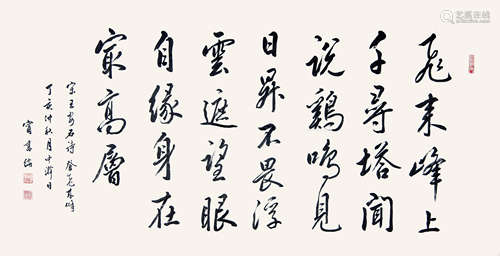 飛来峰上
千尋塔聞
説鷄鳴見
日昇不畏浮
雲遮望眼
自緣身在
最高層
宋王安石詩登飛来峰
丁亥仲秋月于滬日